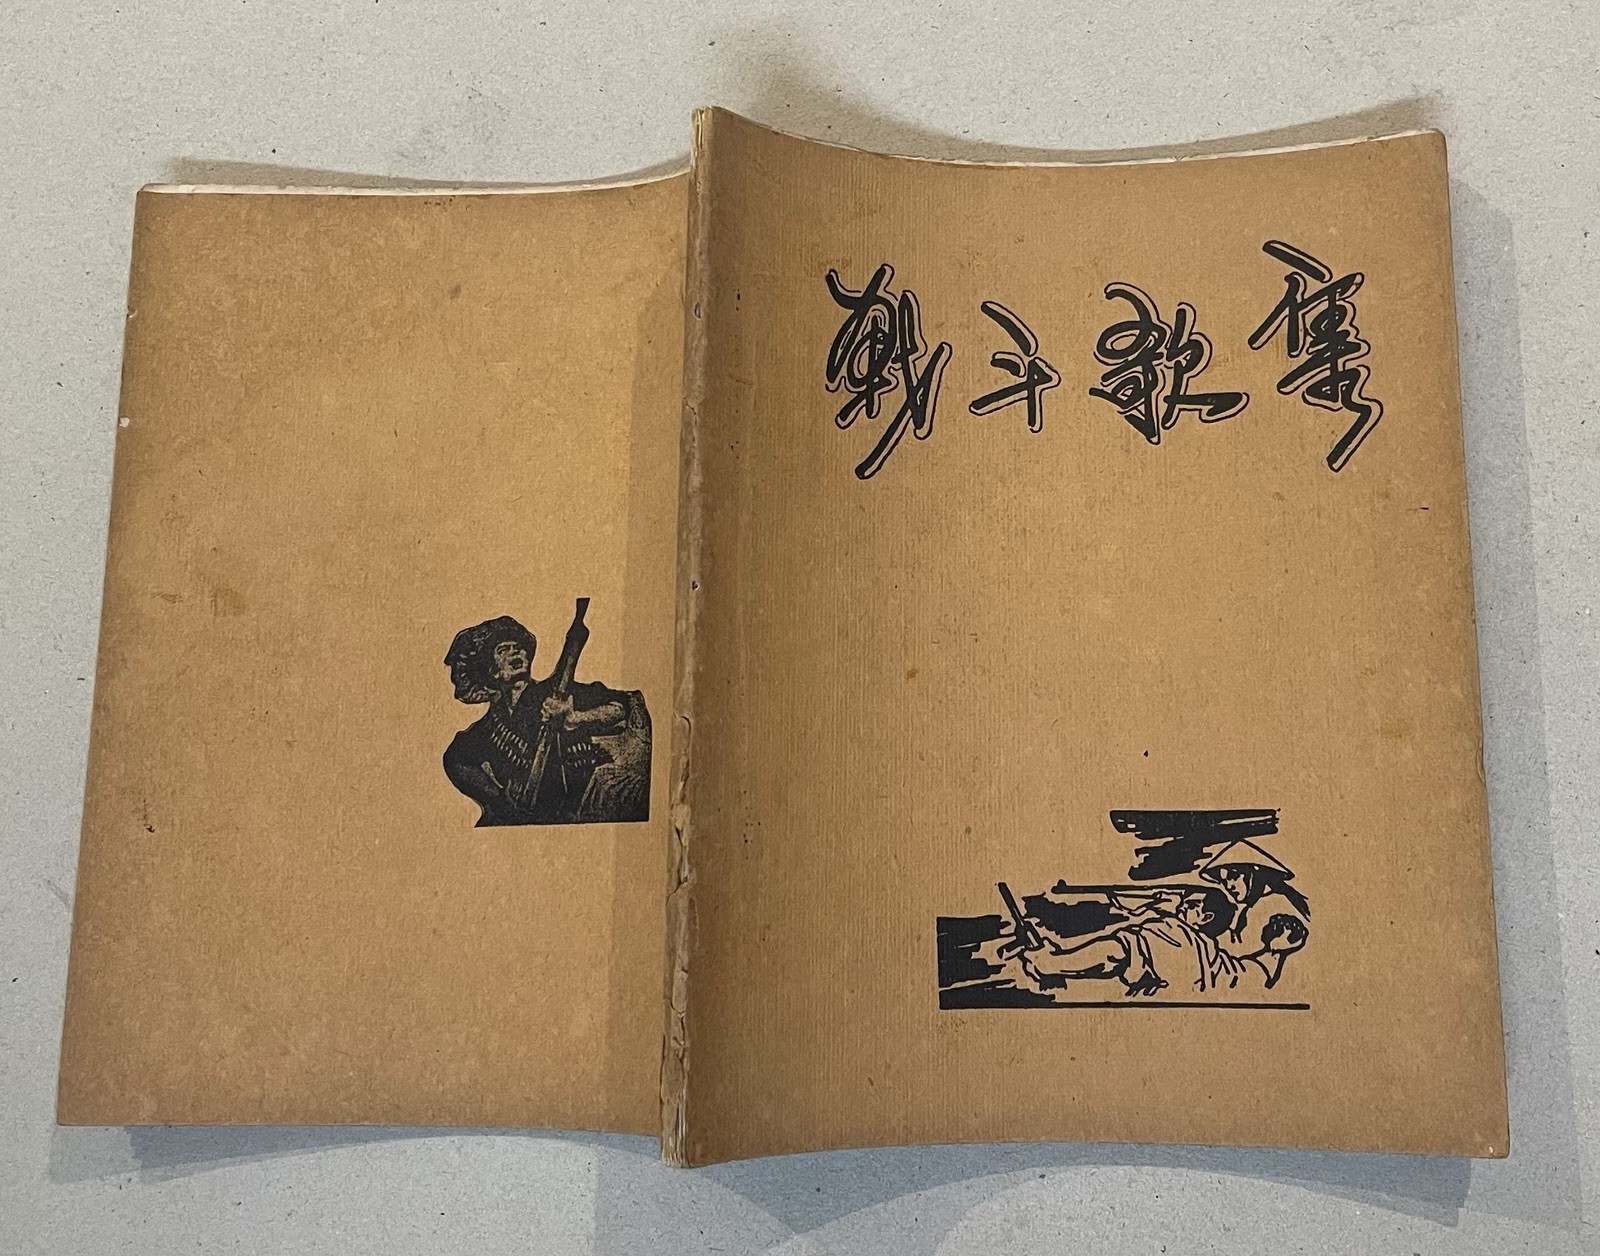 戰斗歌集